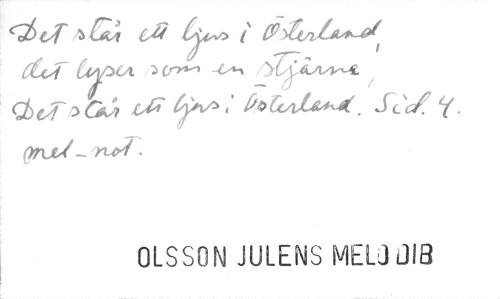 Det står ett ljus i Österland,
det lyser som en stjärna,
Det står ett ljus i Österland. Sid. 4.
mel-not.
OLSSON JULENS MELODIB